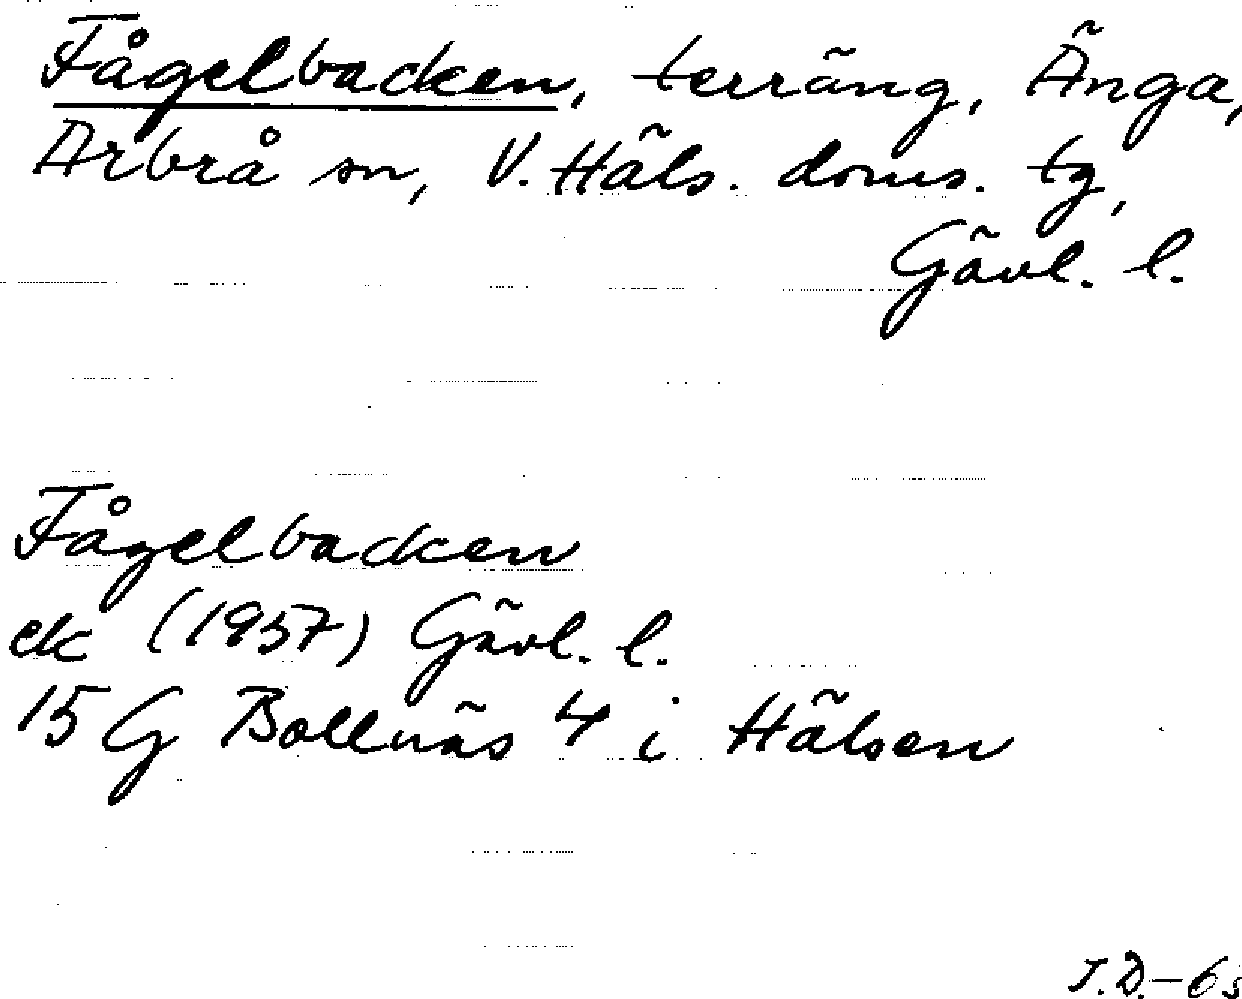 Fågelbacken, terräng, Änga,
Arbrå sn, V. Häls. doms. tg,
Gävl. l.
Fågelbacken
ek (1957) Gävl. l.
15 G Bollnäs 4 i Hälsen